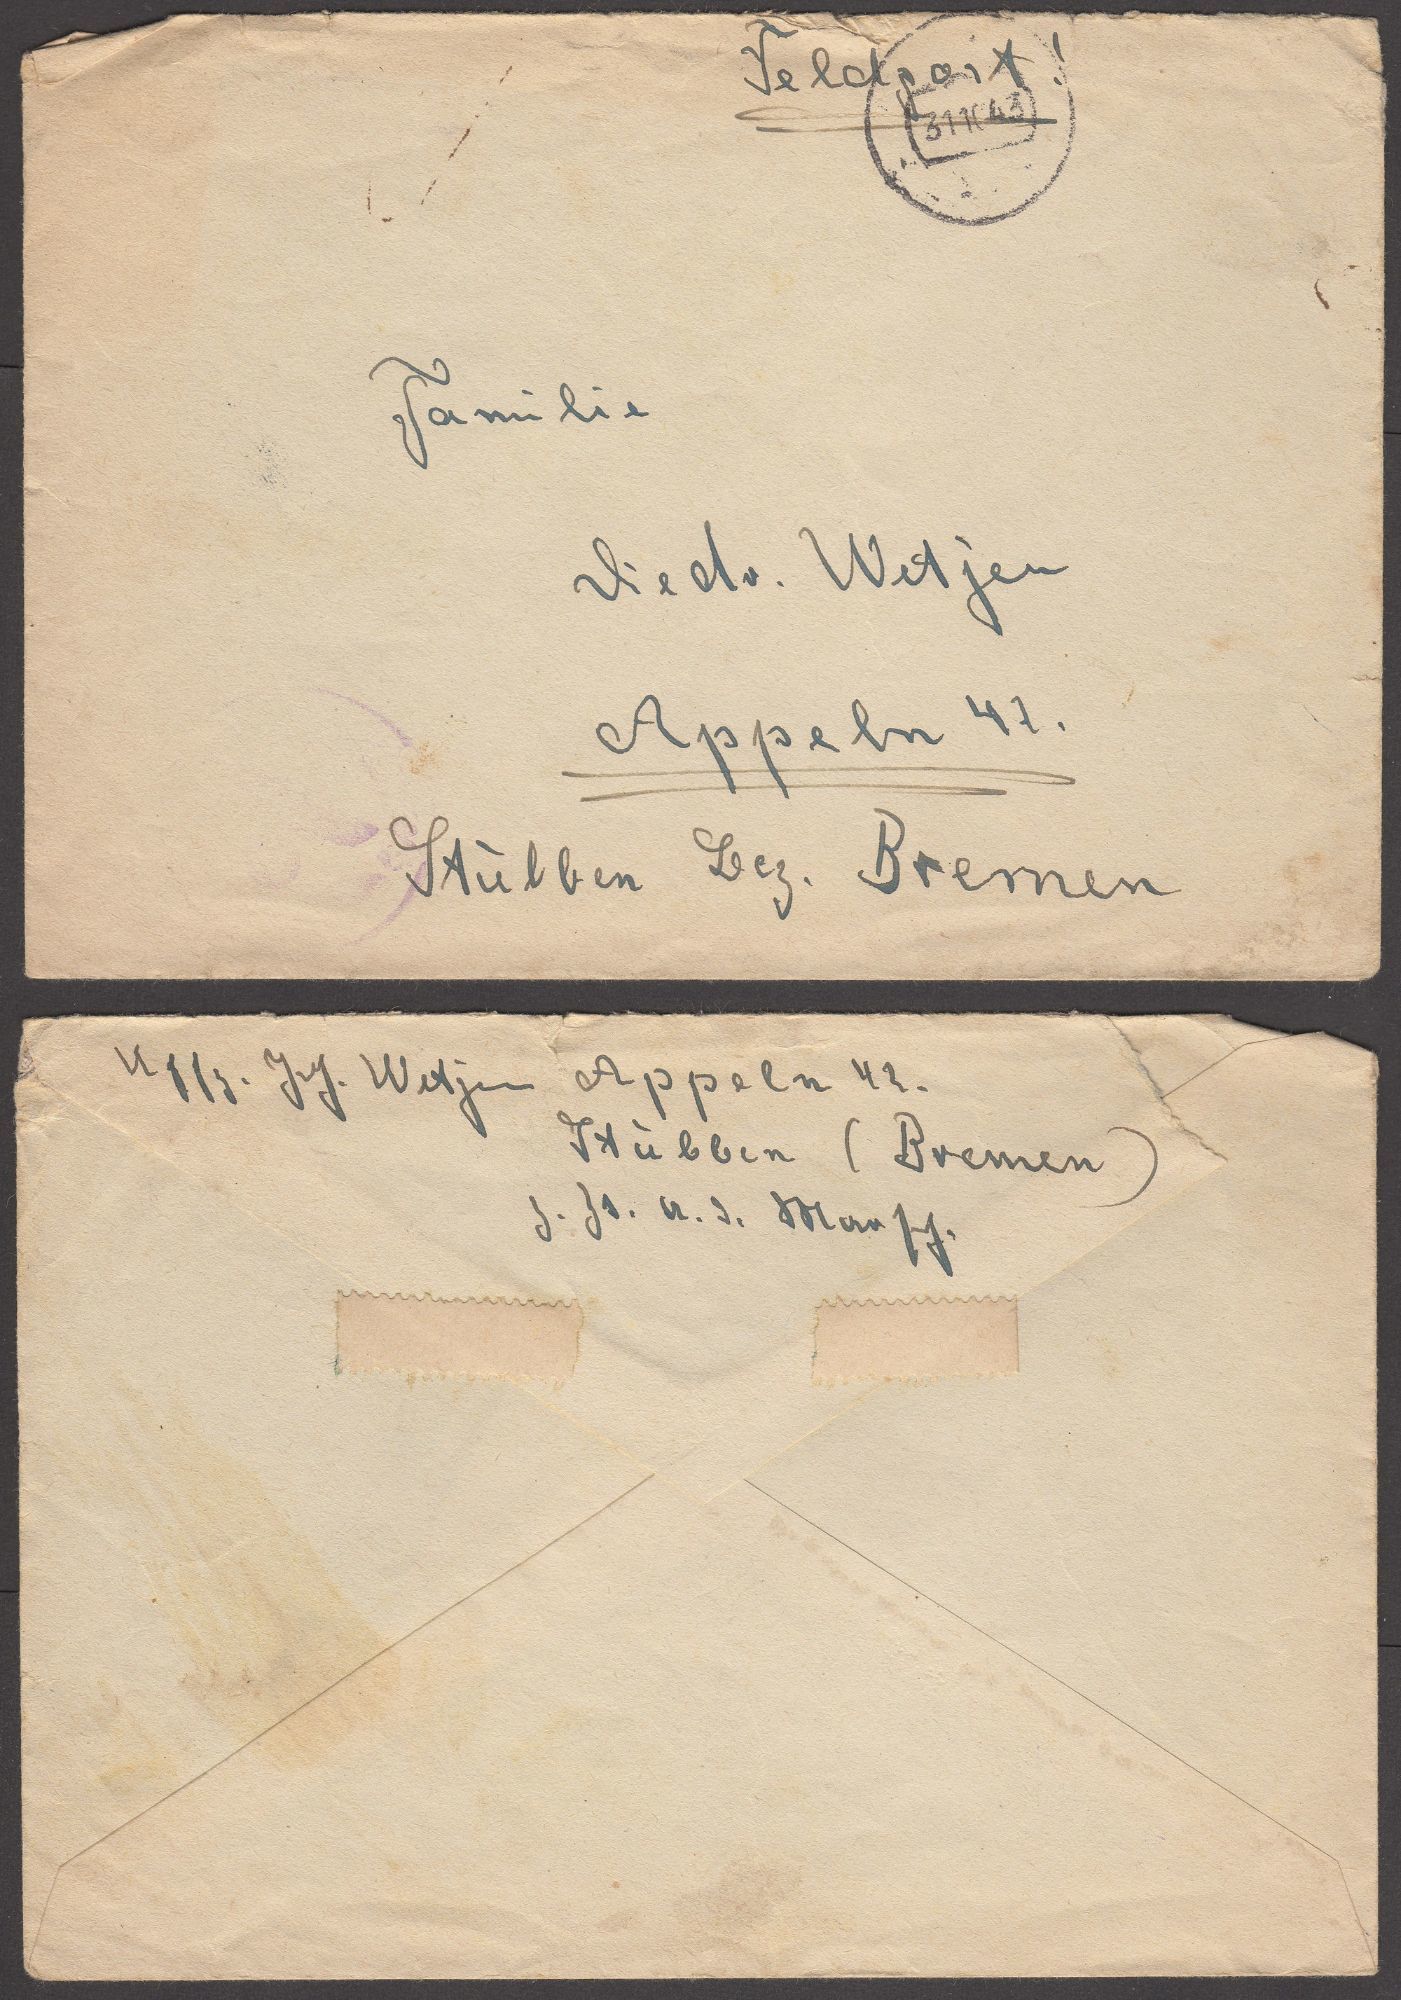 Feldpost!
Familie
Diedr. Wetjen
Appeln 42.
Stübben Bez. Bremen
Uffz. Wetjen Appeln 42.
Stübben (Bremen)
z. Zt. a. d. Marsch.